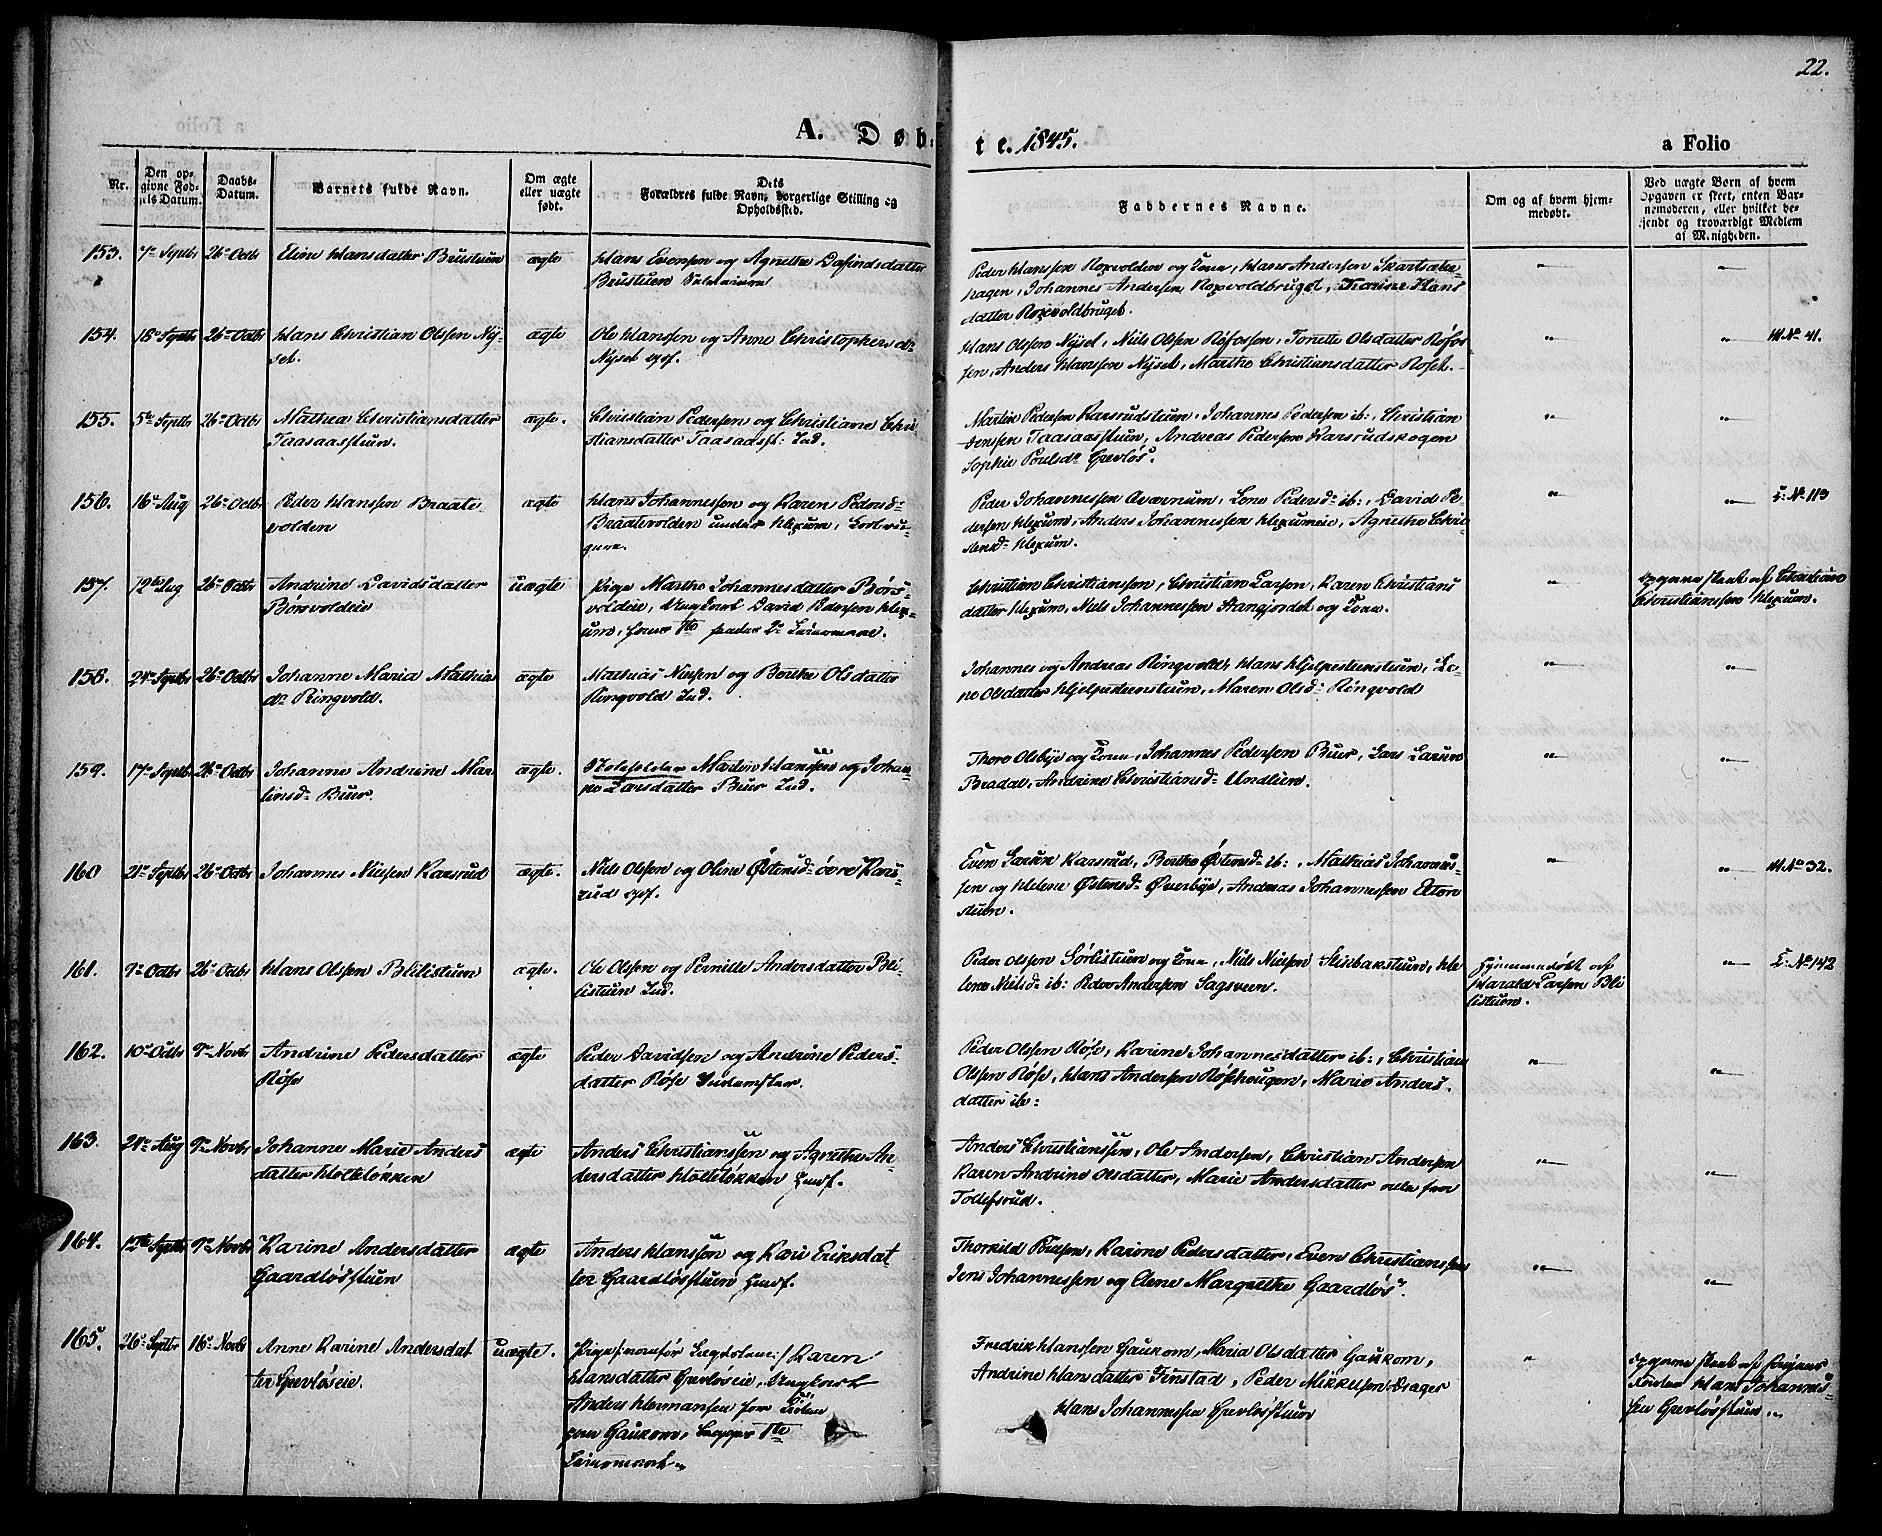 22.
A. Døb-
te. 1845.
a Folio
Nr.
Den op-
givne Fød-
sels Datum.
Daabs-
Datum.
Barnets fulde Navn.
Om ægte
eller uægte
født.
Dets
Forældres fulde Navn, borgerlige Stilling og
Opholdssted.
Faddernes Navne.
Om og af hvem hjem-
medøbt.
Ved uægte Børn af hvem
Opgaven er skeet, enten Bar-
nemoderen, eller hvilket be-
kjendt og troværdigt Medlem
af Menigheden.
153. 7de Septbr 26de Octbr Eline Hansdatter Brustuen ægte Hans Evensen og Agnethe
Brustuen
Peder Hanssen Roxvolden og Kone, Hans Andersen
hagen, Johannes Andersen Roxvoldbruget, Karine Hans
datter Roxvoldbruget.
154. Septbr 26de Octbr Hans Christian Olssen Ny-
set.
ægte Ole Hansen og Anne Christophersdr
Nyset
Hans Olssen Nyset, Niels Olssen Røfossen, Tonette Olsdatter Røfos
sen, Anders Hanssen Nyset, Marthe Christiansdatter Roset.
M. No 41.
155. 5te Septbr 26de Octbr Mathea Christiansdatter
Taasaasstuen.
ægte. Christian Pedersen og Christiane Chri
stiansdatter Taasaasst: Ind.
Martin Pedersen Karsrudstuen, Johannes Pedersen ib:, Christian
Jenssen Taasaasstuen, Andreas Pedersen Karsrudskogen
Sophie Poulsdr Grevløs.
156. 16de Aug 26de Octbr Peder Hanssen Braate
volden
ægte Hans Johannessen og Karen Pedersd
Braatevolden under Hexum,
Peder Johannessen Aværnum, Lene Pedersdr ib:, David Pe
dersen Hexum, Anders Johannessen Hexumeie, Agnethe Chri
stensdr Hexum.
L. No 113
157. 12te Aug 26de Octbr Andrine Davidsdatter
Børsvoldeie
uægte Pige Marthe Johannesdatter Børs-
voldeie, Ungkarl David Pedersen Hex-
um, hans 1te hendes 2det Leiermaal.
Christian Christianssen, Christian Larsen, Karen Christians
datter Hexum, Niels Johannessen Stangjordet og Kone.
Opgaven skeet af Christian
Christianssen Hexum.
158. 24de Septbr 26de Octbr Johanne Maria Mathia
dr Ringvold.
ægte Mathias Nielsen og Berthe Olsdatter
Ringvold Ind.
Johannes og Andreas Ringvold, Hans Hjelpestuenstuen, Le-
ne Olsdatter Hjelpestuenstuen, Maren Olsdr Ringvold
159. 17de Septbr 26de Octbr Johanne Andrine Mar
tinsdr Buer.
ægte. Skoleholder Martin Hanssen og Johan-
ne Larsdatter Buer Ind.
Thore Olsbye og Kone, Johannes Pedersen Buer, Lars Larsen
Bradal, Andrine Christiansdr Undlien.
160 21de Septbr 26de Octbr Johannes Nielsen Karsrud ægte. Niels Olssen og Oline Østensdr øvre Kars-
rud
Even Larsen Karsrud, Berthe Østensdr ib:, Mathias Johannes-
sen og Helene Østensdr Øverbye, Andreas Johannessen
stuen.
M. No 32.
161. 9de Octbr 26de Octbr Hans Olssen Blilistuen ægte. Ole Olssen og Pernille Andersdatter Bli-
listuen Ind.
Peder Olssen Sørlistuen og Kone, Niels Nielsen Skibakstuen, He
lene Nielsdr ib: Peder Andersen Sagsveen.
Hjemmedøbt af
Harald Larsen Bli
listuen.
L. No 142
162. 10de Octbr 9de Novbr Andrine Pedersdatter
Røse
ægte Peder Davidsen og Andrine Peders-
datter Røse
Peder Olssen Røse, Karine Johannesdatter ib:, Christian
Olssen Røse, Hans Andersen Røsehougen, Marie Anders
datter ib:
163. 24de Aug 9de Novbr Johanne Marie Anders
datter Holteløkken
ægte Anders Christianssen og Agnethe An-
dersdatter Holteløkken Huusf.
Anders Christianssen, Ole Andersen, Christian Andersen
Karen Andrine Olsdatter, Marie Andersdatter alle fra
Tollefsrud.
164. Septbr 9de Novbr Karine Andersdatter
Gaardløsstuen
ægte Anders Hanssen og Kari Eriksdat
ter Gaardløsstuen Huusf.
Thorkild Poulsen, Karine Pedersdatter, Even Christianssen
Jens Johannessen og Elene Margrethe Gaardløs.
165. 26de Septbr 16de Novbr Anne Karine Andersdat
ter Grevløseie.
uægte. Karen
Hansdatter Grevløseie, Ungkarl
Anders Hermansen
Gaukom, begges 1te
Leiermaal
Fredrik Hanssen Gaukom, Maria Olsdatter Gaukom,
Andrine Hansdatter Finstad, Peder Mikkelsen Drager
Hans Johannessen Grevløsstuen
Opgaven skeet af Pigens
Fader Hans Johannes-
sen Grevløsstuen